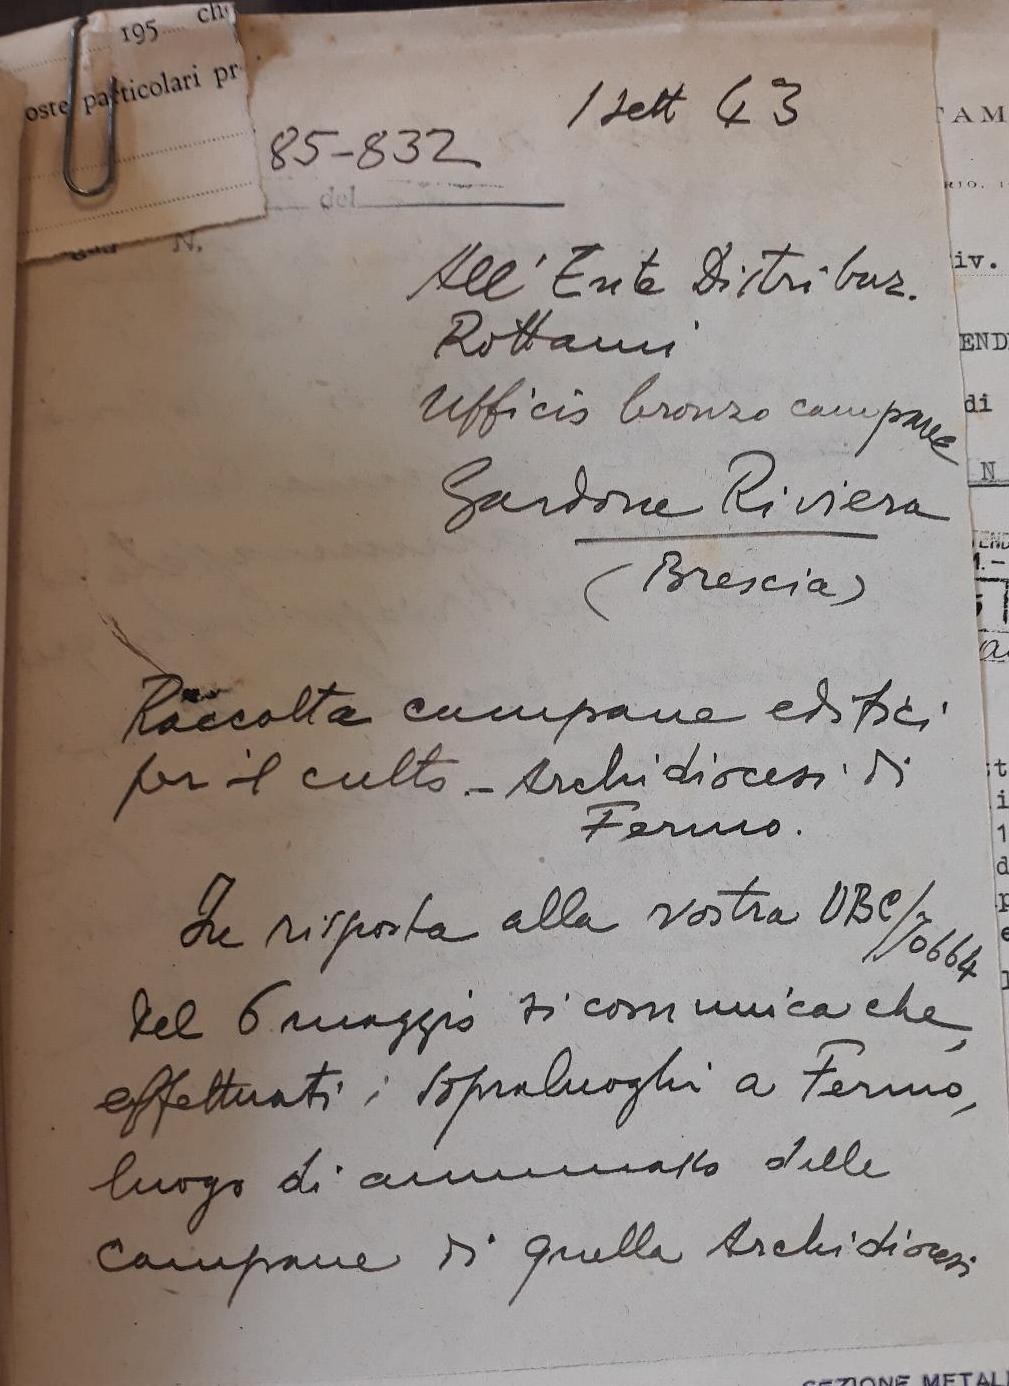 195 ch
oste particolari pr
1 sett 43
85-832
del
N.
All' Ente Distribuz.
Rottami
Ufficio bronzo campane
Gardone Riviera
(Brescia)
Raccolta campane edifici
per il culto - Archidiocesi di
Fermo.
In risposta alla vostra UBC/
del 6 maggio si comunica che,
effettuati i sopraluoghi a Fermo,
luogo di ammasso delle
campane di quella Archidiocesi
TAM
RIO.
iv.
END
di
N
SEZIONE METAL